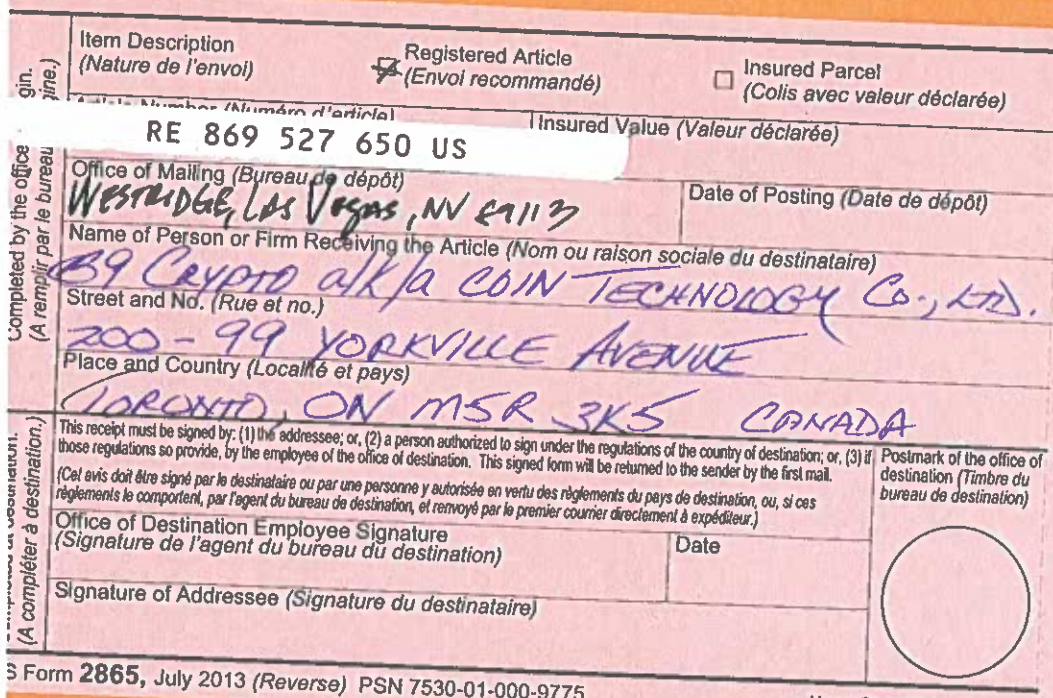 Item Description
(Nature de l'envoi)
Registered Article
(Envoi recommandé)
Insured Parcel
(Colis avec valeur déclarée)
Article Number (Numéro d'article)
Insured Value (Valeur déclarée)
RE 869 527 650 US
Office of Mailing (Bureau de dépôt)
Date of Posting (Date de dépôt)
WESTRIDGE, LAS Vegas, NV 89113
Name of Person or Firm Receiving the Article (Nom ou raison sociale du destinataire)
B9 CRYPTO a/k/a COIN TECHNOLOGY Co., LTD.
Street and No. (Rue et no.)
200-99 YORKVILLE AVENUE
Place and Country (Localité et pays)
TORONTO, ON M5R 3K5 CANADA
Completed by the office
gin.
(A remplir par le bureau
gine.)
This receipt must be signed by: (1) the addressee; or, (2) a person authorized to sign under the regulations of the country of destination; or, (3) if
those regulations so provide, by the employee of the office of destination. This signed form will be returned to the sender by the first mail.
(Cet avis doit être signé par le destinataire ou par une personne y autorisée en vertu des règlements du pays de destination, ou, si ces
règlements le comportent, par l'agent du bureau de destination, et renvoyé par le premier courrier directement à expéditeur.)
Postmark of the office of
destination (Timbre du
bureau de destination)
Office of Destination Employee Signature
(Signature de l'agent du bureau du destination)
Date
Signature of Addressee (Signature du destinataire)
at destination.
(A compléter à destination.)
S Form 2865, July 2013 (Reverse) PSN 7530-01-000-9775